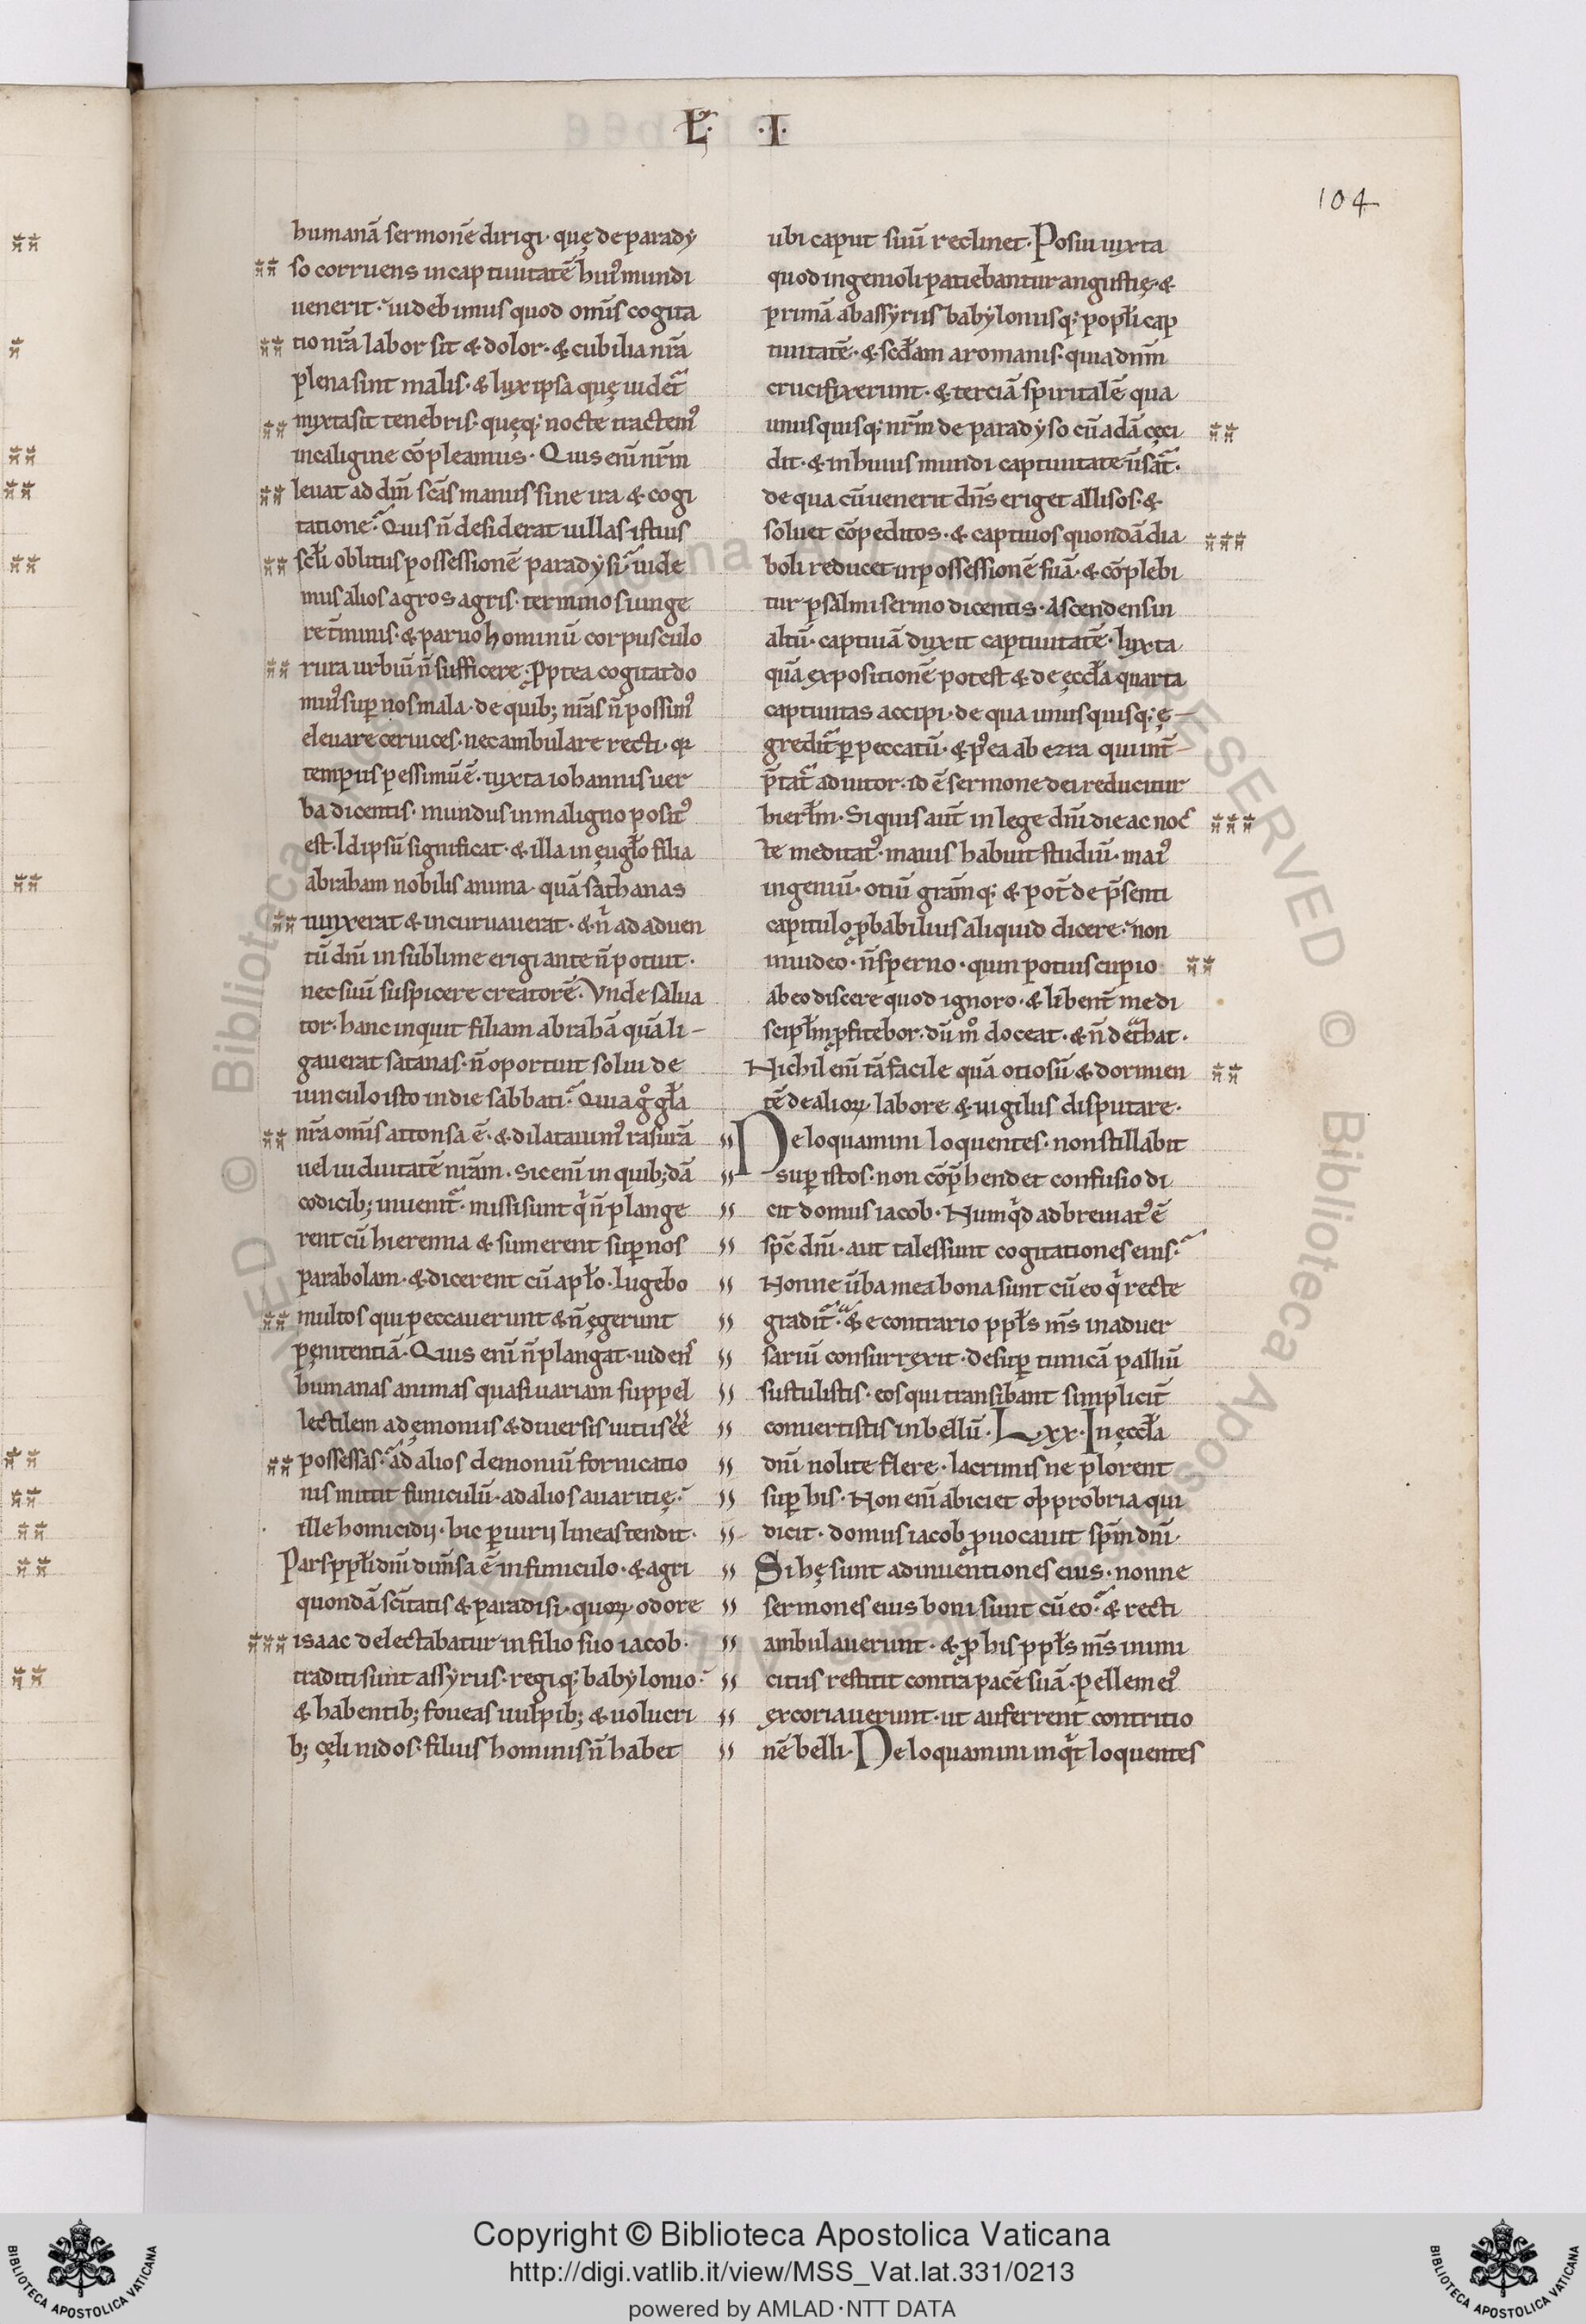 L· ·I·
104
humanā sermonē dirigi· quę de parady
so corruens in captiuitatē hui᷒ mundi
uenerit· uidebimus quod om̄s cogita
tio nr̄a labor sit & dolor· & cubilia nr̄a
plena sint malis· & lux ipsa quę uidet᷑
mixta sit tenebris· quęq; nocte tractem᷒
in caligine cōpleamus· Quis enī nr̄m
leuat ad dm̄ sc̄as manus sine ira & cogi
tatione· Quis n̄ desiderat uillas istius
sc̄li oblitus possessionē paradysi· uide
mus alios agros agris· terminos iunge
re t̄minis· & paruo hominū corpusculo
rura urbiū n̄ sufficere· Ppt̄ea cogitat do
min᷒ sup̱ nos mala· de quib; nr̄as n̄ possim᷒
eleuare ceruices· nec ambulare recti· q̄a
tempus pessimū ē· iuxta iohannis uer
ba dicentis· mundus in maligno posit᷒
est· Id ipsū significat· & illa in ęugłio filia
abraham nobilis anima· quā sathanas
iunxerat & incuruauerat· & n̄ ad aduen
tū dn̄i in sublime erigi ante n̄ potuit·
nec suū suspicere creatorē· Vnde salua
tor· hanc inquit filiam abrahā quā li-
gauerat satanas· n̄ oportuit solui de
uinculo isto in die sabbati· Quia g° głia
nr̄a om̄s attonsa ē· & dilatauim᷒ rasurā
uel uiduitatē nr̄am· Sic enī in quib;dā
codicib; inuenit᷑· missi sunt qͥ n̄ plange
rent cū hieremia & sumerent sup̱ nos
parabolam· & dicerent cū apło· lugebo
multos qui peccauerunt & n̄ ęgerunt
pęnitentiā· Quis enī n̄ plangat· uidens
humanas animas quasi uariam suppel
lectilem a dęmoniis & diuersis uitiis ēē
possessas· ad alios demoniū fornicatio
nis mittit funiculū· ad alios auaritię·
ille homicidij· hic p̱iurij lineas tendit·
Pars ppłi dn̄i dim̄sa ē in funiculo· & agri
quondā sc̄itatis & paradisi· quoꝝ odore
isaac delectabatur in filio suo iacob·
traditi sunt assyriis· regiq; babylonio·
& habentib; foueas uulpib; & uolucri
b; cęli nidos· filius hominis n̄ habet
ubi caput suū reclinet· Posui iuxta
quod ingenioli patiebantur angustię· &
primā ab assyriis babyloniisq; popłi cap
tiuitatē· & scd̄am a romanis· quia dnm̄
crucifixerunt· & terciā spiritalē qua
unusquisq; nr̄m de paradyso cū adā ceci
dit· & in huius mundi captiuitate ūsat᷑·
de qua cū uenerit dn̄s eriget allisos· &
soluet cōpeditos· & captiuos quondā dia
boli reducet in possessionē suā· & cōplebi
tur psalmi sermo dicentis· Ascendens in
altū· captiuā duxit captiuitatē· Iuxta
quā expositionē potest & de ęccłia quarta
captiuitas accipi· de qua unusquisq; ę-
gredit᷑ p̱ peccatū· & p᷒ea ab ezra qui int̄-
p̄tat᷑ adiutor· id ē sermone dei reducitur
hierłm· Si quis aut̄ in lege dn̄i die ac noc
te meditat᷒· maius habuit studiū· mai᷒
ingeniū· otiū gram̄q; & pot̄ de p̄senti
capitulo ꝓbabilius aliquid dicere· non
inuideo· n̄ sperno· quin potius cupio
ab eo discere quod ignoro· & libent̄ me di
scipłm ꝓfitebor· dū m° doceat· & n̄ det᷑hat·
Nichil enī tā facile quā otiosū & dormien
tē de alioꝝ labore & uigiliis disputare·
Ne loquamini loquentes· non stillabit
sup̱ istos· non cōp̄hendet confusio di
cit domus iacob· Numqͥd adbreuiat᷒ ē
sp̄c dn̄i· aut tales sunt cogitationes eius·
Nonne ūba mea bona sunt cū eo qͥ recte
gradit᷑· & e contrario ppłs ms̄ in aduer
sariū consurrexit· desup̱ tunicā palliū
sustulistis· eos qui transibant simplicit̄
conuertistis in bellū· Lxx· In ęccłia
dn̄i nolite flere· lacrimis ne plorent
sup̱ his· Non enī abiciet obprobria qui
dicit· domus iacob ꝓuocauit sp̄m dn̄i·
Si hę sunt adinuentiones eius· nonne
sermones eius boni sunt cū eo· & recti
ambulauerunt· & ꝓ his ppłs ms̄ inimi
citiis restitit contra pacē suā· pellem ei᷒
excoriauerunt· ut auferrent contritio
nē belli· Ne loquamini inqͥt loquentes
Copyright © Biblioteca Apostolica Vaticana
http://digi.vatlib.it/view/MSS_Vat.lat.331/0213
powered by AMLAD·NTT DATA
BIBLIOTECA APOSTOLICA VATICANA
BIBLIOTECA APOSTOLICA VATICANA